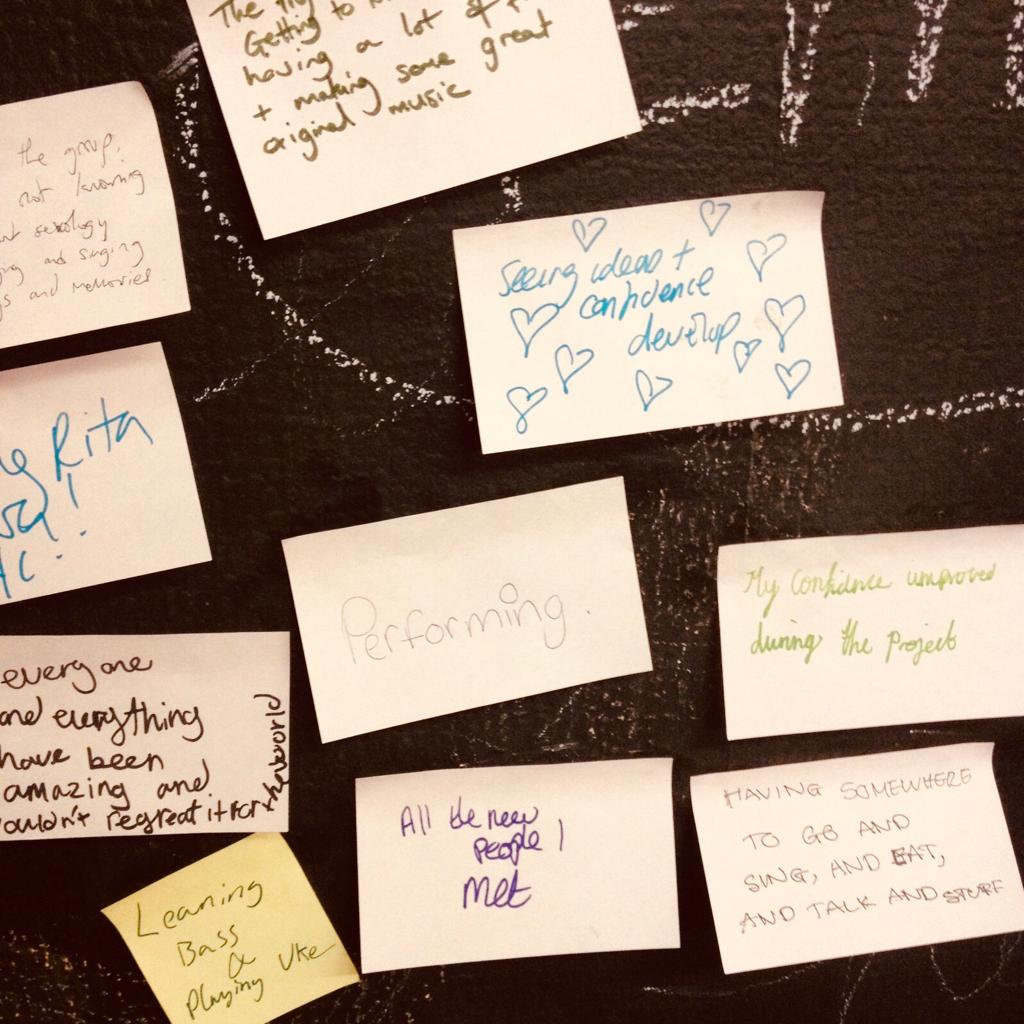 The
Getting to
having a lot of
+ making some great
original music
the group,
not knowing
sexology
and singing
and memories
Seeing ideas +
confidence
develop
Rita
Performing.
My Confidence improved
during the Project
everyone
and everything
have been
amazing and
wouldn't regreat it for the world
All the new
people I
met
HAVING SOMEWHERE
TO GO AND
SING, AND EAT,
AND TALK AND STUFF
Learning
Bass
&
Playing Uke